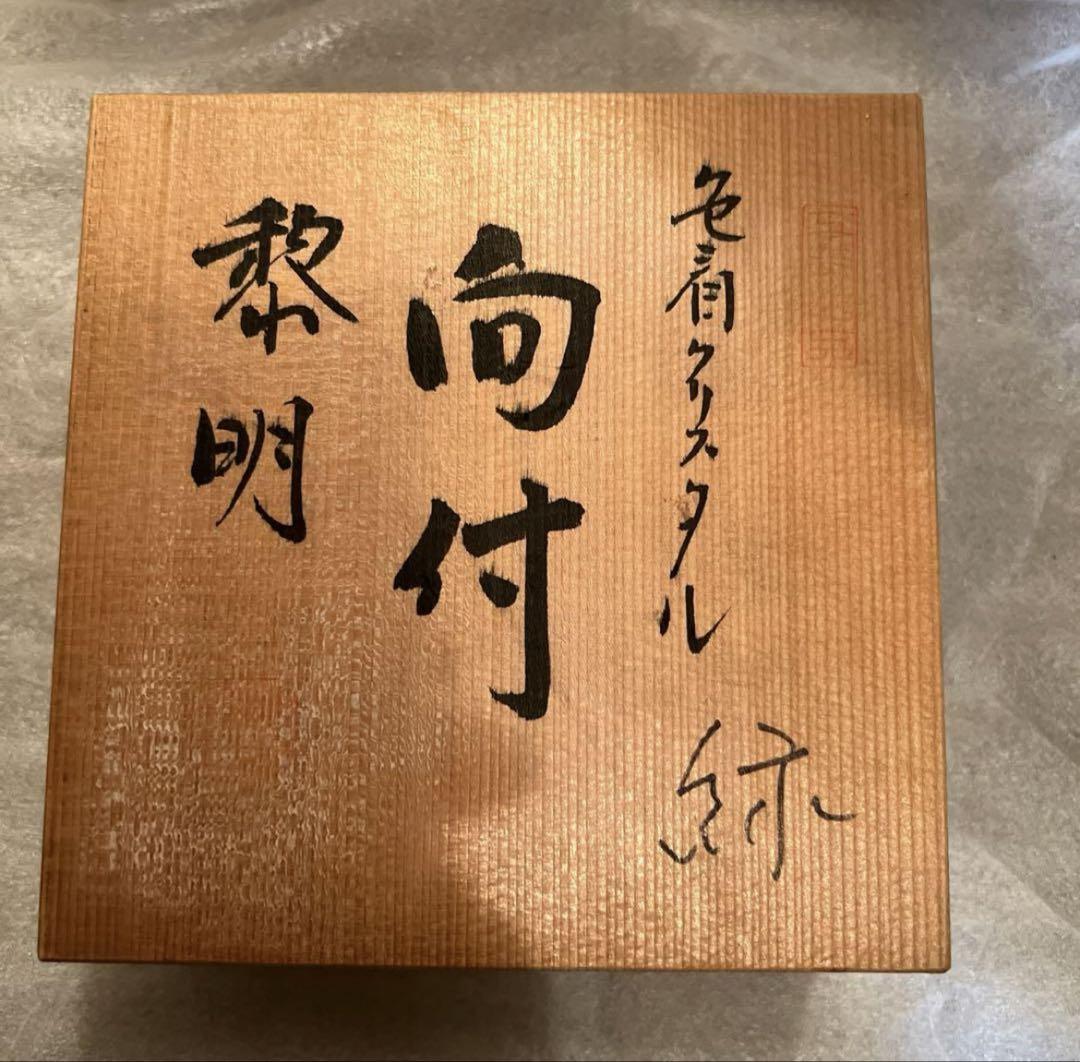 色着クリスタル 緑
向付
黎明